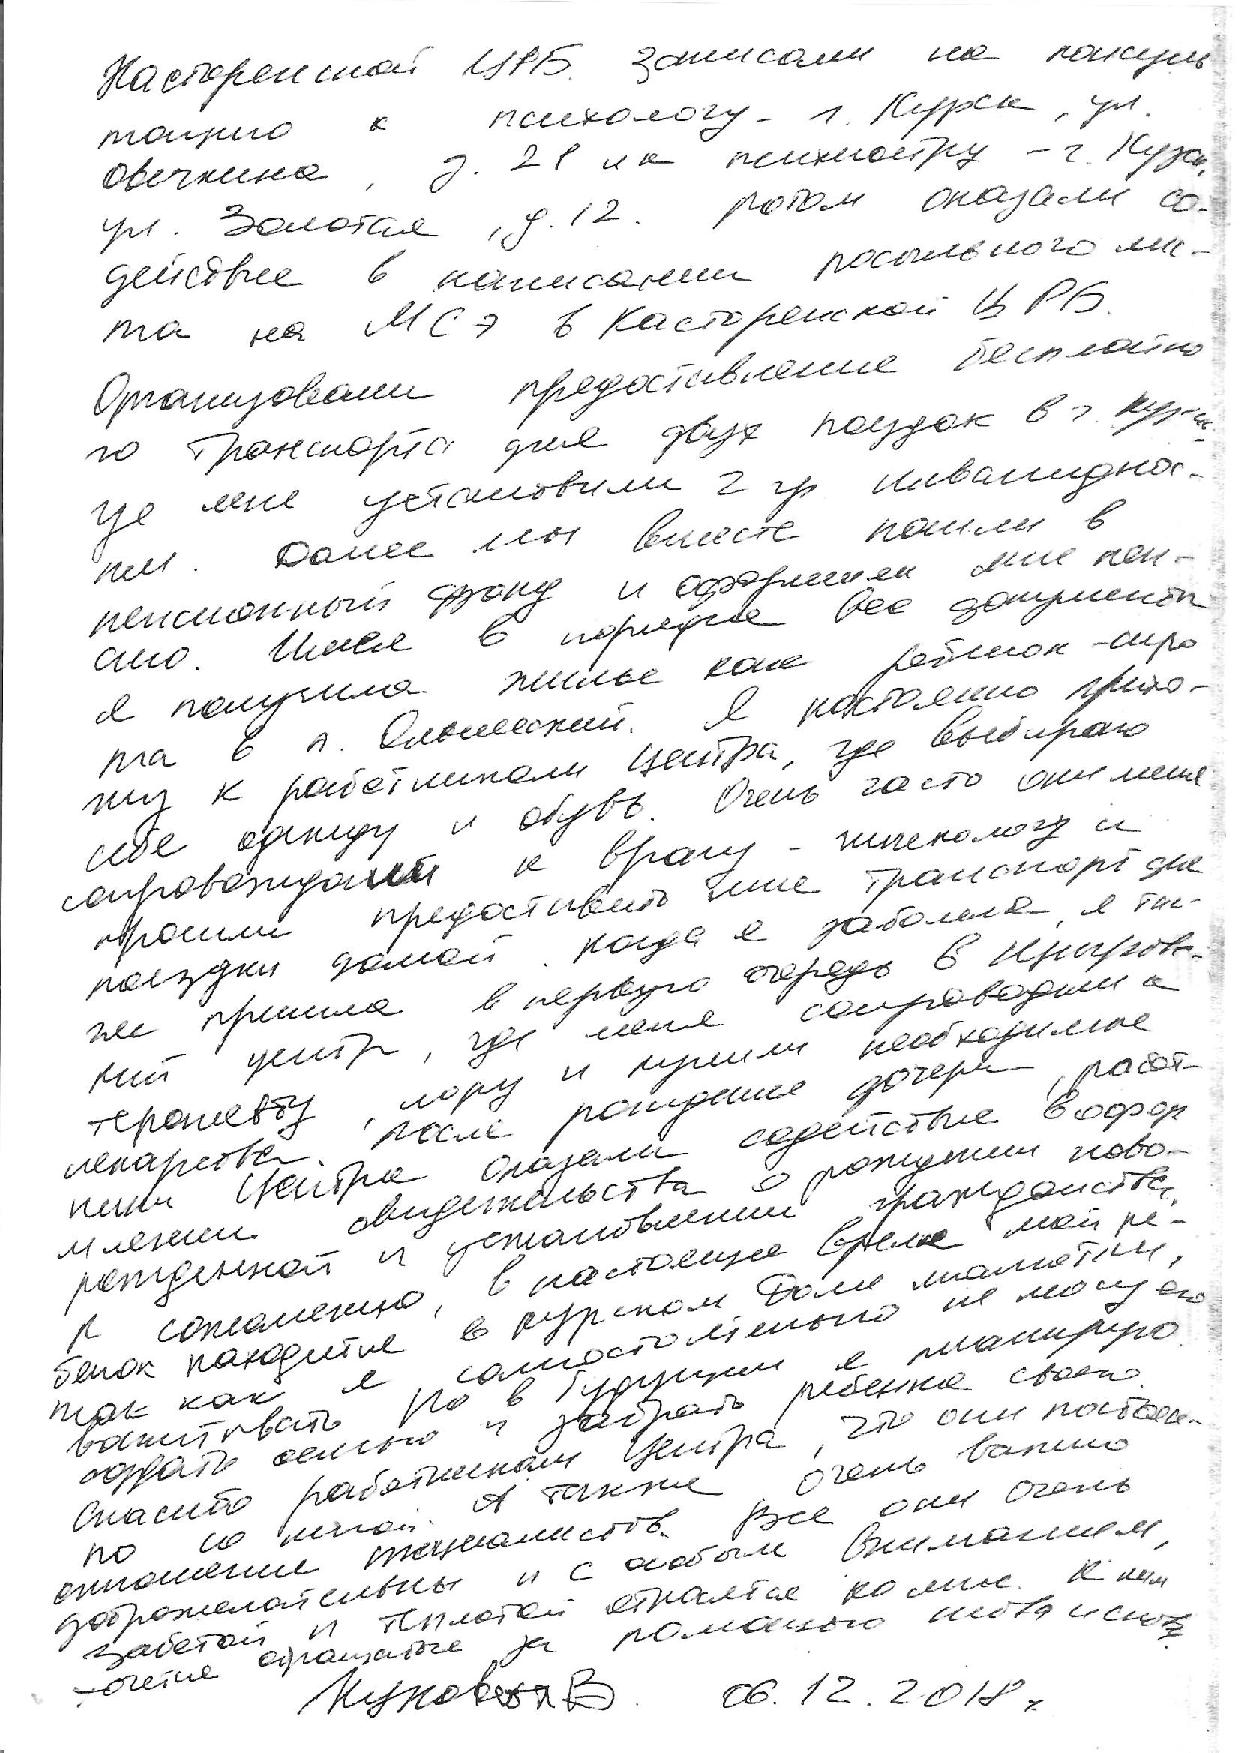 Касторенской ЦРБ. Записали на консуль
тацию к психологу - г. Курск, ул.
Овечкина, д. 21 и к психиатру - г. Курск,
ул. Золотая, д. 12. Потом оказали со-
действие в написании посыльного лис-
та на МСЭ в Касторенской ЦРБ.
Организовали предоставление бесплатно
го транспорта для двух поездок в г. Курск,
где мне установили 2 гр инвалиднос-
ти. Далее мы вместе пошли в
пенсионный фонд и оформили мне пен-
сию. Имея в порядке все документы
я получила жилье как ребенок-сиро
та в п. Олымский. Я постоянно прихо-
жу к работникам Центра, где выбираю
себе одежду и обувь. Очень часто они меня
сопровождали к врачу - гинекологу и
просили предоставить мне транспорт для
поездки домой. Когда я заболела, я так-
же пришла в первую очередь в
ный центр, где меня сопроводили к
терапевту, лору и купили необходимые
лекарства. После рождения дочери, работ-
ники Центра оказали содействие в офор
млении свидетельства о рождении ново-
рожденной и установлении гражданства.
К сожалению, в настоящее время мой ре-
бенок находится в Курском Доме малютки,
так как я самостоятельно не могу его
воспитывать. Но в будущем я планирую
создать семью и забрать ребенка своего.
Спасибо работникам Центра, что они постоян-
но со мной. А также очень важно
отношение специалистов. Все они очень
доброжелательны и с особым вниманием,
заботой и теплотой отнеслись ко мне. К ним
обращаться за помощью
В. 06.12.2018 г.